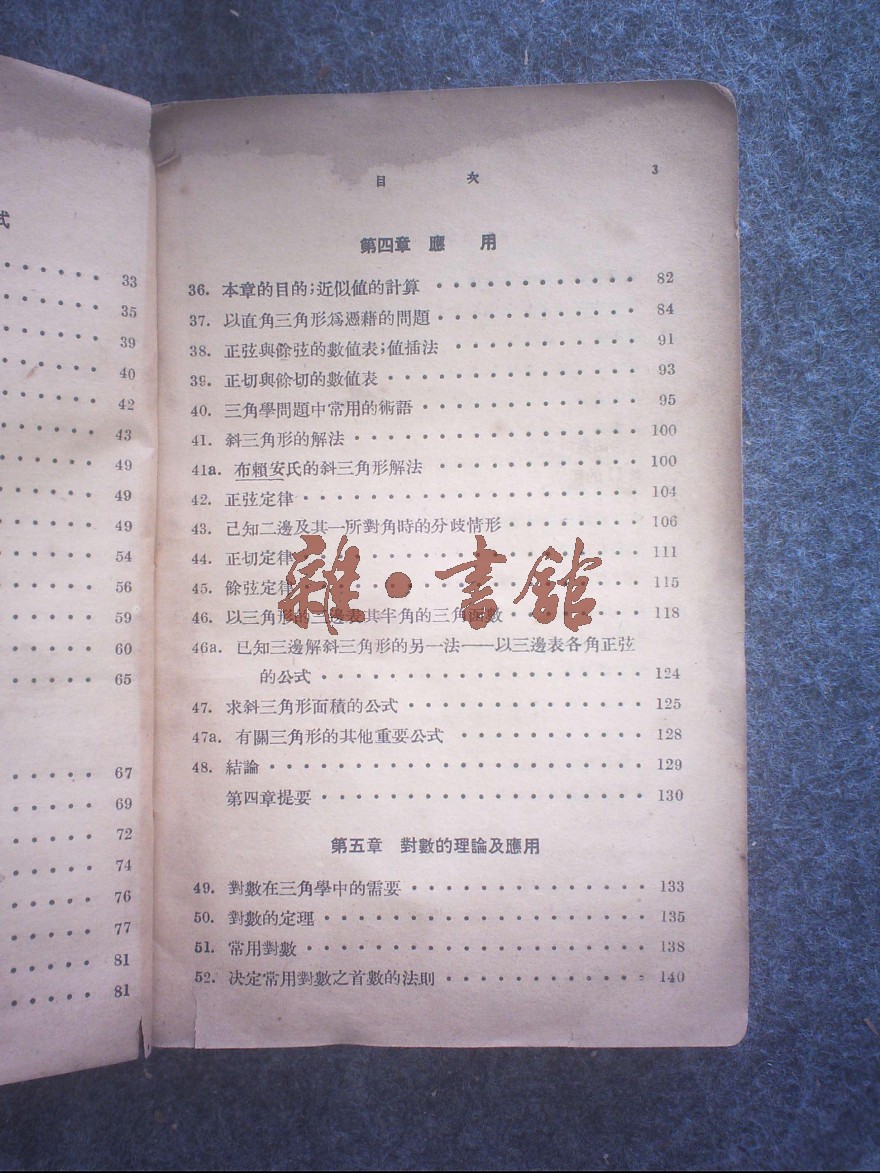 式
33
35
39
40
42
43
49
49
49
54
56
59
60
65
67
69
72
74
76
77
81
81
目 次 3
第四章 應 用
36. 本章的目的;近似値的計算 82
37. 以直角三角形爲憑藉的問題 84
38. 正弦與餘弦的數値表;値插法 91
39. 正切與餘切的數値表 93
40. 三角學問題中常用的術語 95
41. 斜三角形的解法 100
41a. 布賴安氏的斜三角形解法 100
42. 正弦定律 104
43. 已知二邊及其一所對角時的分歧情形 106
44. 正切定律 111
45. 餘弦定律 115
46. 以三角形的三邊表其半角的三角函數 118
46a. 已知三邊解斜三角形的另一法——以三邊表各角正弦
的公式 124
47. 求斜三角形面積的公式 125
47a. 有關三角形的其他重要公式 128
48. 結論 129
第四章提要 130
第五章 對數的理論及應用
49. 對數在三角學中的需要 133
50. 對數的定理 135
51. 常用對數 138
52. 決定常用對數之首數的法則 140
雜·書館